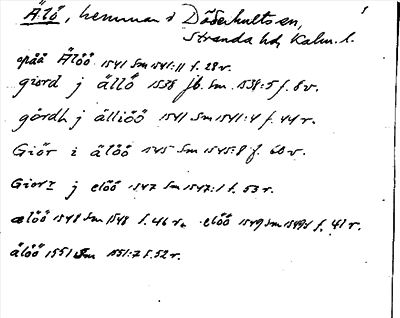 Älö, hemman i Döderhults sn,
Stranda hd, Kalm. l.
opåå Älöö 1541 Sm 1541:11 f. 28 v.
giord j ällö 1538 jb. Sm. 1538:5 f. 6 v.
gårdh j älliöö 1541 Sm 1541:4 f. 44 r.
Giör i älöö 1545 Sm 1545:8 f. 60 v.
Giorz j elöö 1547 Sm 1547:1 f. 53 r.
ælöö 1548 Sm 1548 f. 46 r. elöö 1549 Sm 1549:1 f. 41 r.
älöö 1551 Sm 1551:7 f. 52 r.